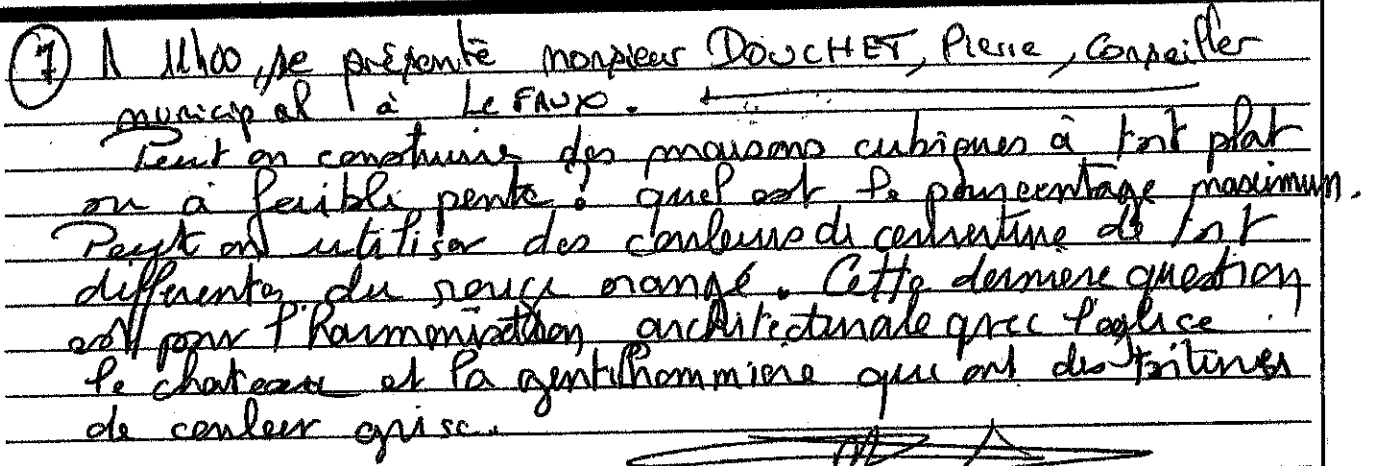 7 A 11h00, se présente monsieur DOUCHET, Pierre, Conseiller
municipal à LE FAUX.
Peut on construire des maisons cubiques à toit plat
ou à faible pente : quel est le pourcentage maximum.
Peut on utiliser des couleurs de couverture de toit
differentes du rouge orangé. Cette derniere question
est pour l'harmonisation architecturale avec l'eglise
le chateau et la gentilhommiere qui ont des toitures
de couleur grise.